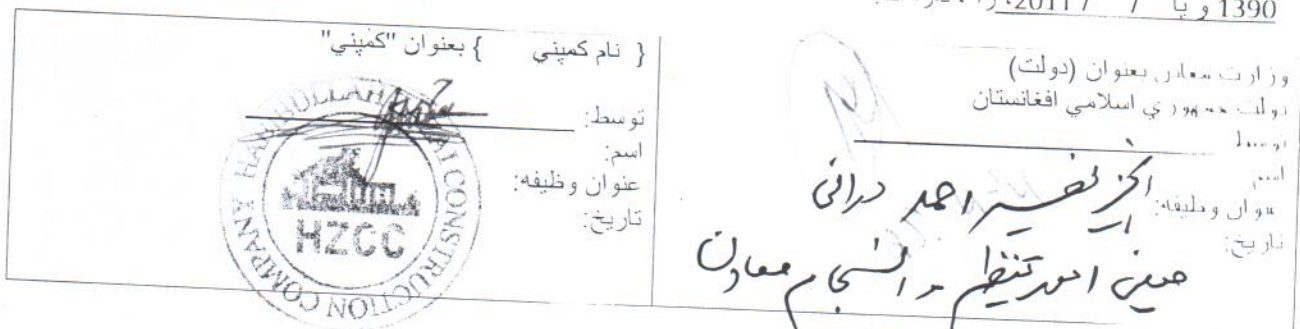 1390 و یا / / 2011،
وزارت معادن بعنوان (دولت)
دولت جمهوري اسلامي افغانستان
توسط
اسم
عنوان وظیفه:
تاریخ:
احمد درانی
معین امور تنظیم و انسجام معادن
{ نام کمپني } بعنوان "کمپني"
توسط:
اسم:
عنوان وظیفه:
تاریخ:
CONSTRUCTION COMPANY
HZCC